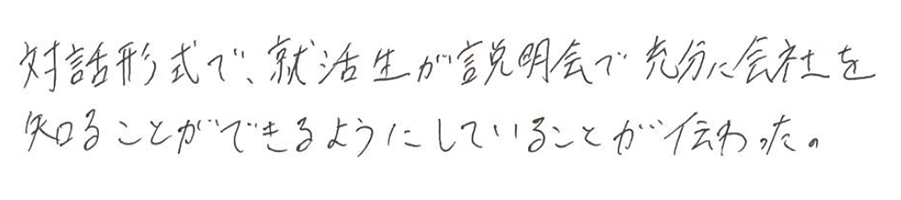 対話形式で、就活生が説明会で充分に会社を
知ることができるようにしていることが伝わった。